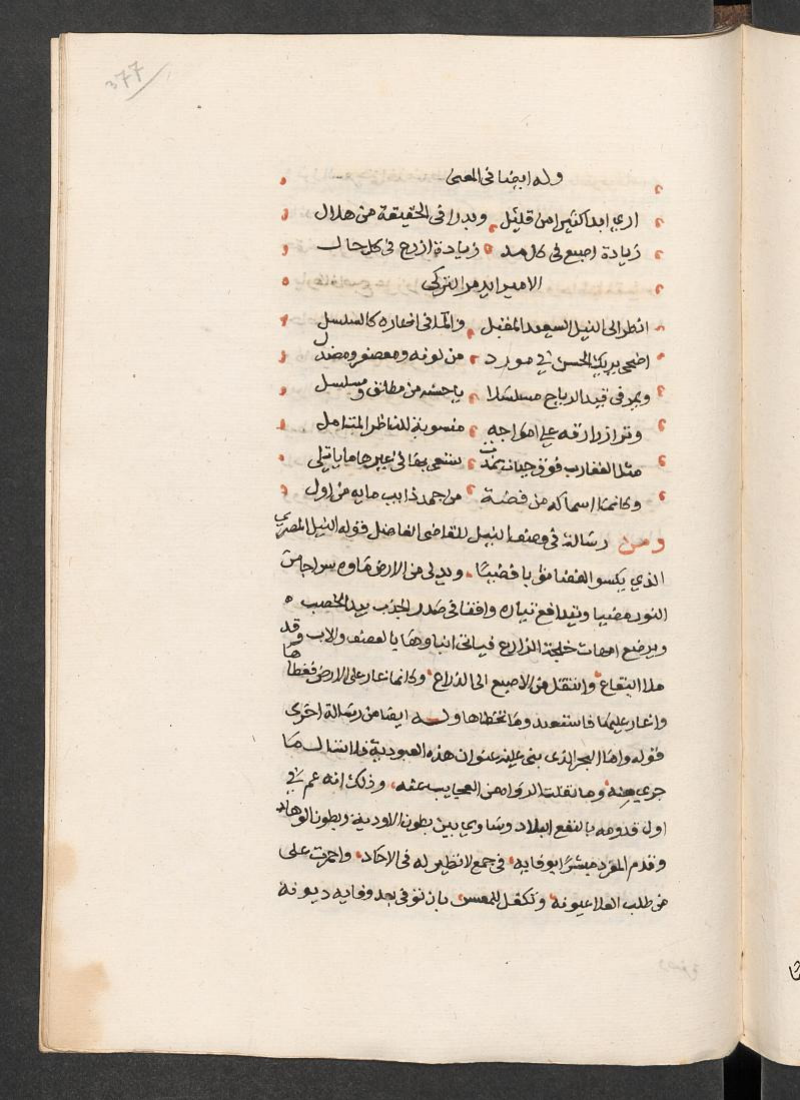 377
وله ايضا فى المعنى
ارى ابدا كثيرا من قليل وبدرا فى الحقيقة من هلال
زيادة اصبع فى كل مد زيادة ازرع فى كل حال
الامير ايدمر التركى
انظر الى النيل السعيد المقبل والما فى انهاره كالسلسل
اضحى يريك الحسن فى مورد من لونه ومعصفر ومصندل
ويمر فى قيد الرياح مسلسلا يا حسنه من مطلق ومسلسل
وترا زوارقه على امواجه منسوبة للناظر المتامل
مثل العقارب فوق حيات يسعى
وكانما اسماكه من فضة من جمد ذايب مايه من اول
ومن رسالة فى وصف النيل للقاضى الفاضل قوله النيل المصرى
الذى يكسو الفضا ثوبا فضيا ويدلى من الارض ماوه سراجا من
النور مضيا ويتدافع تياره واقفا فى صدر الجدب بيد الخصب
ويرضع امهات خلجة المزارع فياتى ابناوها بالعصف والاب وقد
ملا البقاع وانتقل من الاصبع الى الذراع وكانما غار على الارض فغطاها
واغار عليها فاستقعد وما تخطاها وله ايضا من رسالة اخرى
قوله واما البحر الذى بنى عليه عنوان هذه العبودية فلا تسال عما
جرى منه وما نقلت الرواه من العجايب عنه وذلك انه عم فى
اول قدومه بالنفع البلاد وساوى بين بطون الاودية وبطون الوهاد
وقدم المفرد مبشرا بوفايه فى جمع لا نظير له فى الاحاد واحمرت على
من طلب الغلا عيونه وتكفل للمعسر بان توفى بعد وفايه ديونه